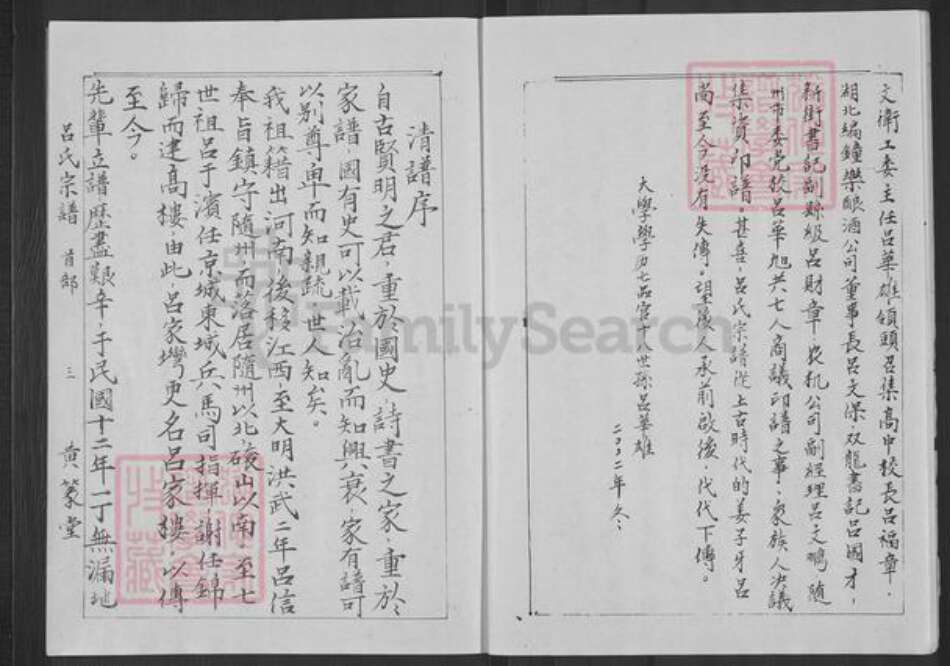 文衛工委主任呂華雄領頭召集高中校長呂福章．
湖北編鐘樂酿酒公司董事長呂文保，双龍書記呂國才，
新街書記副縣級呂財章，农机公司副經理呂文鵬，随
州市委党校呂華旭共七人商議印譜之事，家族人决議
集資印譜。甚喜，呂氏宗譜從上古時代的姜子牙呂
尚至今没有失傳。望後人承前啟後，代代下傳。
大學學历七品官十八世孫呂華雄
二00二年冬、
清譜序
自古賢明之君，重於國史，詩書之家，重於
家譜，國有史可以載治亂而知興衰，家有譜可
以别尊卑而知親疏，世人知矣。
我祖籍出河南，後移江西，至大明洪武二年呂信
奉旨鎮守隨州，而落居隨州以北，礦山以南，至七
世祖呂于濱任京城東城兵馬司指揮，謝任錦
歸而建高樓，由此，呂家塆更名呂家樓，以傳
至今。
先輩立譜歷盡艱辛，于民國十二年一丁無漏地
呂氏宗譜 首部 三 黄篆堂
FamilySearch